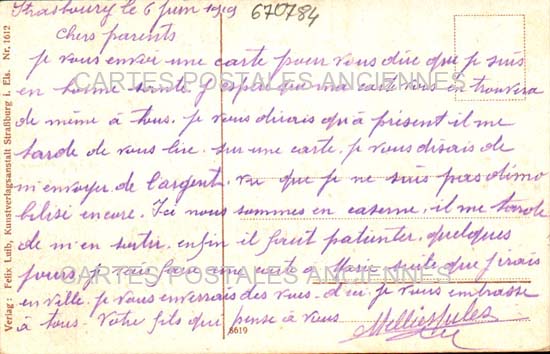 Strasbourg le 6 juin 1919
670784
Chers parents
je vous envoi une carte pour vous dire que je suis
en bonne santé. J'espère que ma carte vous en trouvera
de même à tous. je vous dirais qu'à présent il me
tarde de vous lire. sur une carte. je vous disais de
m'envoyer de l'argent. vu que je ne suis pas démo
bilisé encore. Ici nous sommes en caserne. il me tarde
de m'en sortir. enfin il faut patienter. quelques
jours. je vais faire une carte a Marie suite que j'irais
en ville. je vous enverrais des vues. d'ici je vous embrasse
à tous. Votre fils qui pense à vous
Jules
CARTES POSTALES ANCIENNES
CARTES POSTALES ANCIENNES
Verlag: Felix Luib, Kunstverlagsanstalt Straßburg i. Els. Nr. 1612
8619